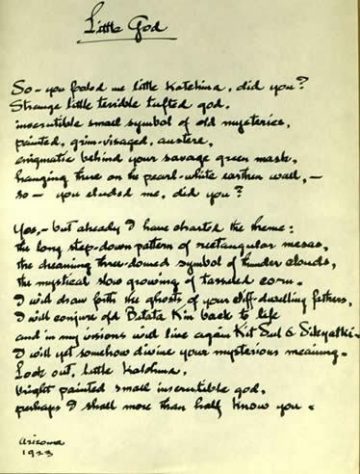 Little God
So - you fooled me little Katchina, did you?
Strange little terrible tufted god,
inscrutible small symbol of old mysteries,
painted, grim-visaged, austere,
enigmatic behind your savage green mask,
hanging there on the pearl-white earthen wall, -
so - you eluded me, did you?
Yes, - but already I have charted the theme:
the long step-down pattern of rectangular mesas,
the dreaming three-domed symbol of thunder clouds,
the mystical slow growing of tasseled corn.
I will draw forth the ghosts of your cliff-dwelling fathers,
I will conjure old Betata Kin back to life
and in my visions will live again Kit Seel & Sikyatki -
I will yet somehow divine your mysterious meaning.
Look out, little Katchina,
bright painted small inscrutible god,
perhaps I shall more than half know you.
Arizona
1923